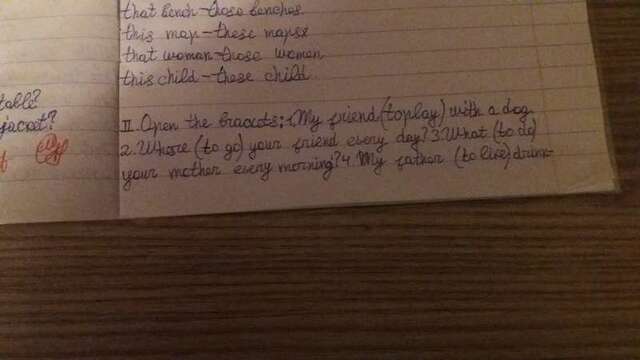 that bench-those benches.
this map-these mapse
that woman-those women
this child-these child.
table?
jacket?
II. Open the brackets: 1. My friend (to play) with a dog
2. Where (to go) your friend every day? 3. What (to do)
your mother every morning? 4. My father (to like) drink-